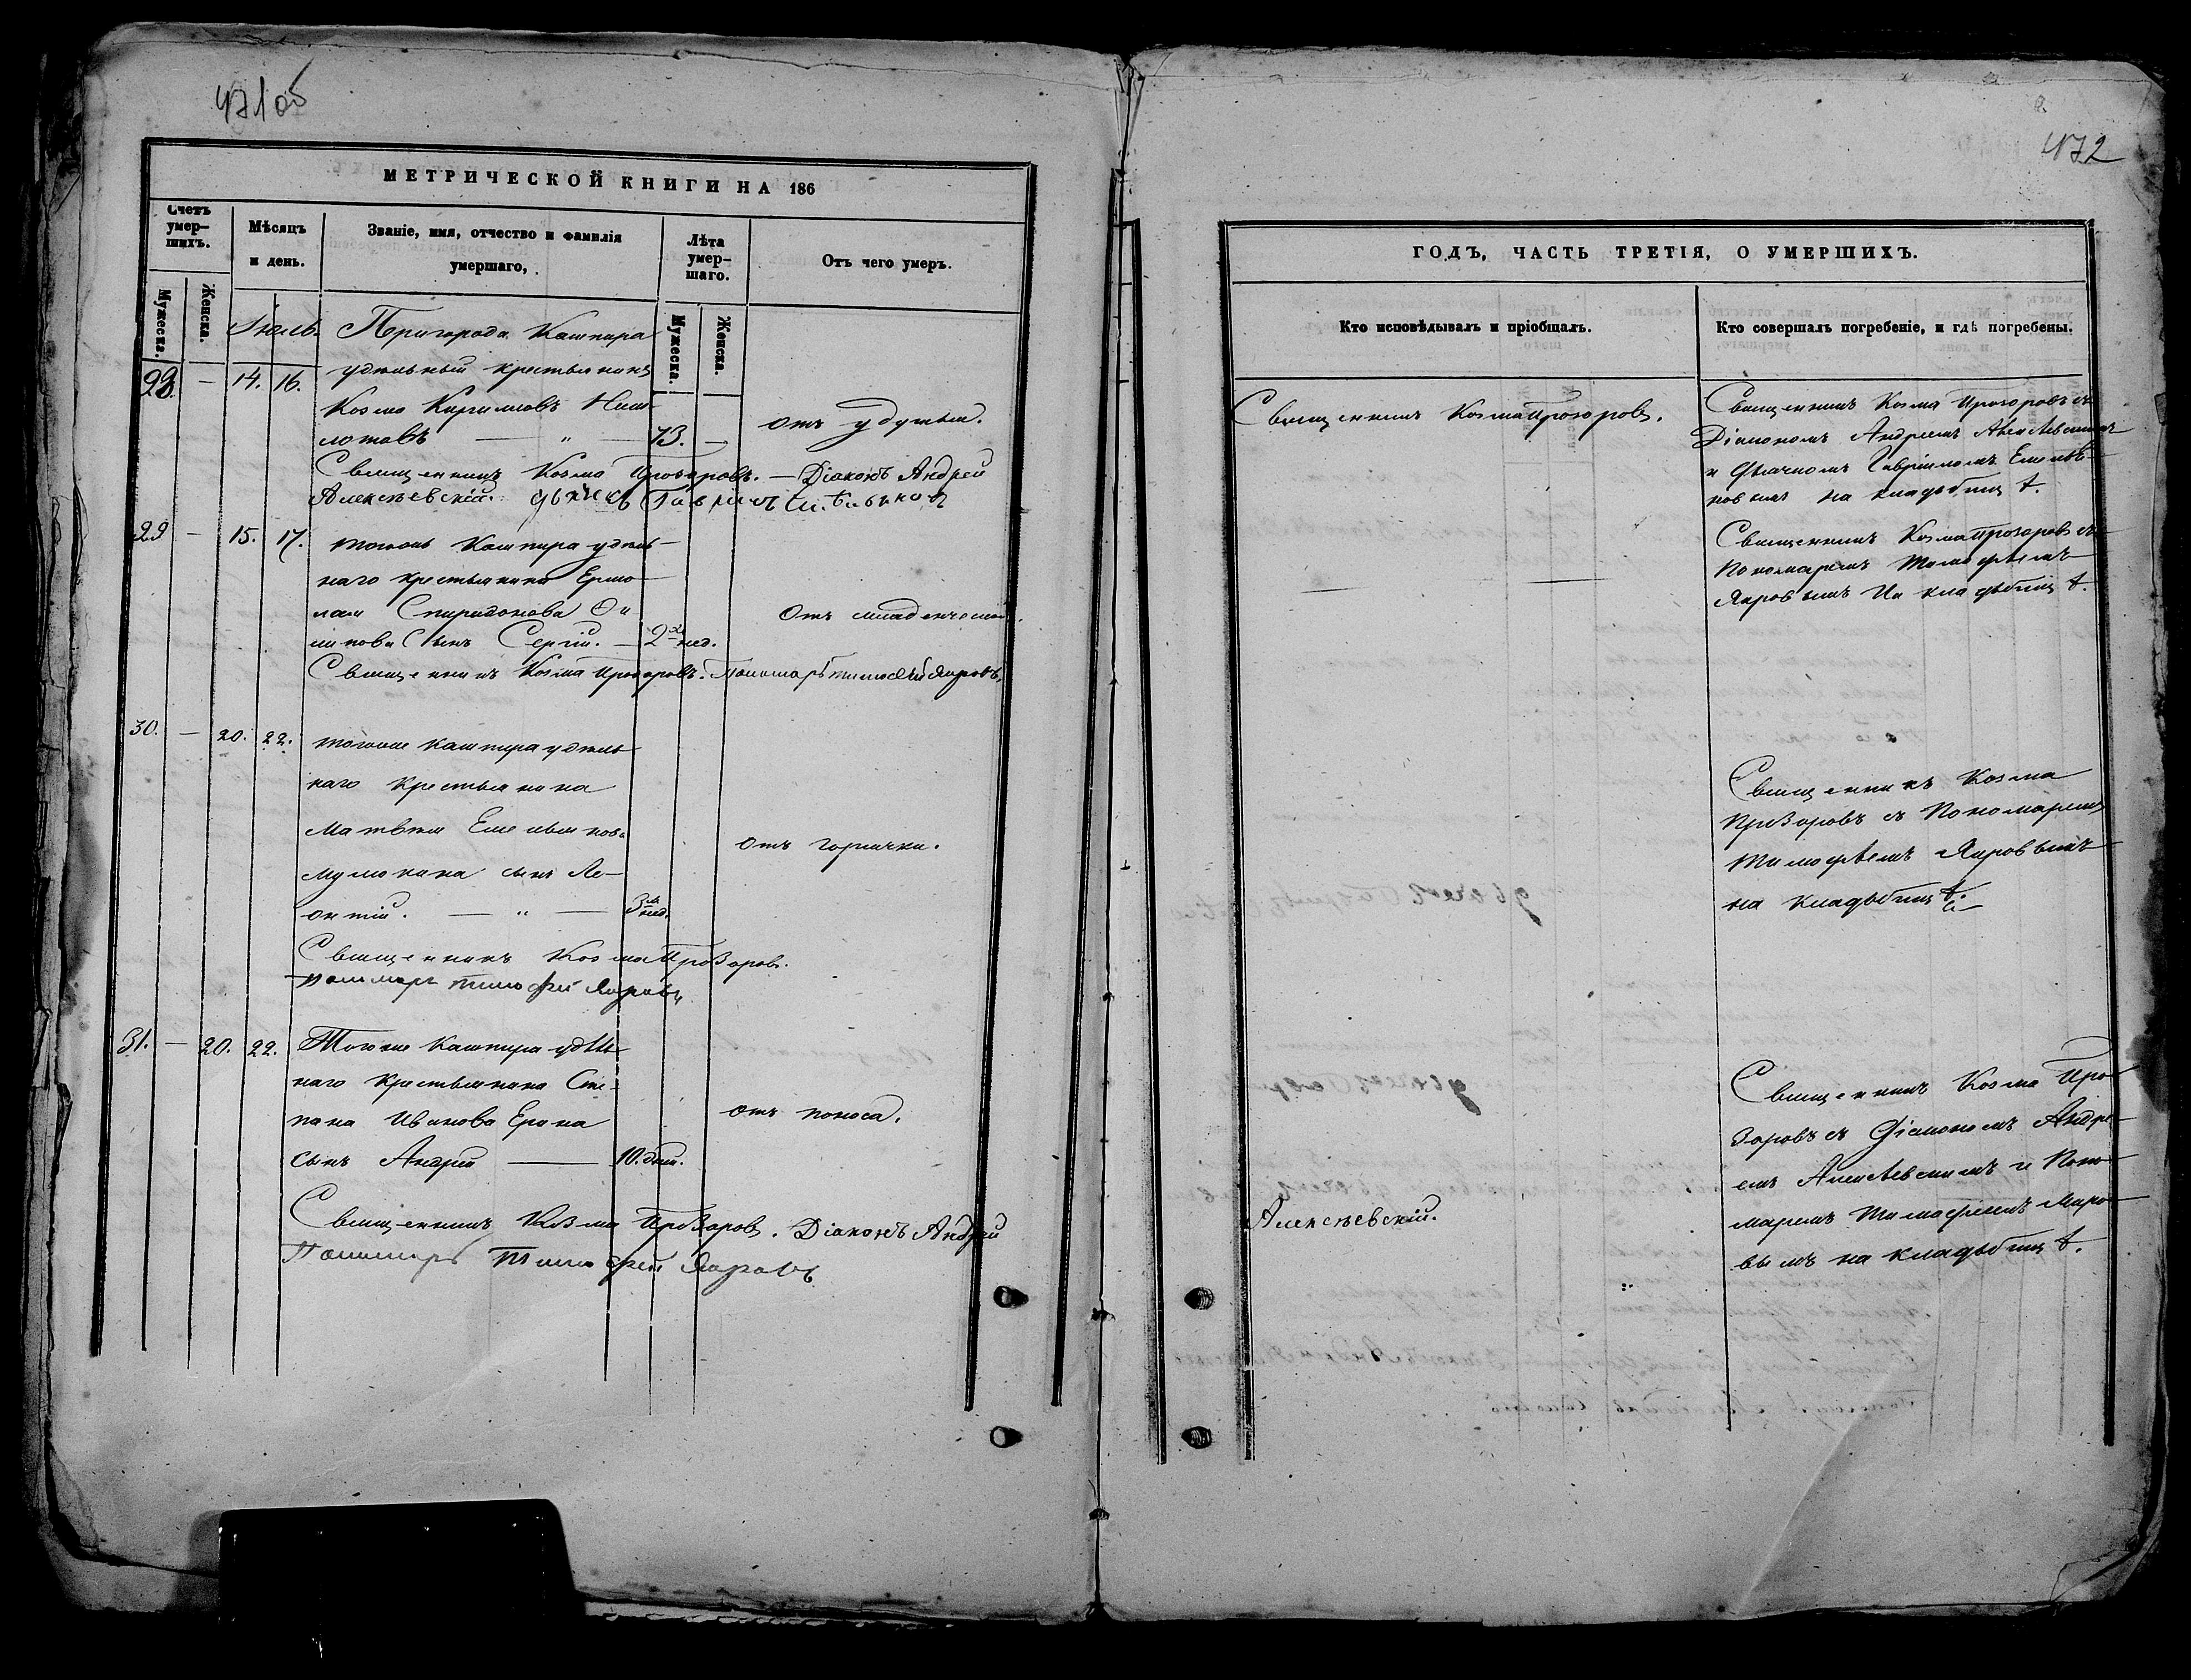 471об
МЕТРИЧЕСКОЙ КНИГИ НА 186
Счетъ умер-шихъ.
Мужеска.
Женска.
Мѣсяцъ и день.
Званіе, имя, отчество и фамилія умершаго,
Лѣта умер-шаго.
Мужеска.
Женска.
Отъ чего умеръ.
Іюль.
Пригорода Кашпира
28. — 14. 16. удѣльный крестьянинъ
Козма Кириловъ
— „ — 73. — отъ удушья.
Священникъ Козма Прозоровъ. — Діаконъ Андрей
Алексѣевскій. дьячекъ Гавріилъ
29 — 15. 17. тогоже Кашпира удѣль-
наго крестьянина Ермо-
лая Спиридонова Фи
липова сынъ Сергій. — 2хъ нед. Отъ младенческой.
Священникъ Козма Прозоровъ. Пономарь Тимофей Яировъ.
30. — 20. 22. тогоже Кашпира удѣль-
наго крестьянина
Матвѣя Емельянова
Мулюкина сынъ Ле-
онтій. — „ — 3 нед. отъ горячки.
Священникъ Козма Прозоровъ.
пономарь тимофей Яировъ
31. — 20. 22. Тогоже Кашпира удѣль-
наго крестьянина Сте-
пана Иванова Ерина
сынъ Андрей — 10. дней. отъ поноса.
Священникъ Козма Прозоровъ. Діаконъ Андрей
Пономарь Тимофей Яировъ
472
ГОДЪ, ЧАСТЬ ТРЕТІЯ, О УМЕРШИХЪ.
Кто исповѣдывалъ и пріобщалъ.
Кто совершалъ погребеніе, и гдѣ погребены.
Священникъ Козма Прозоровъ.
Священникъ Козма Прозоровъ съ
Діакономъ Андреемъ Алексѣевскимъ
и Дьячкомъ Гавріиломъ
на кладбищѣ.
Священникъ Козма Прозоровъ съ
Пономаремъ Тимофѣемъ
Яировымъ на кладбищѣ.
Священникъ Козма
Прозоровъ съ Пономаремъ
Тимофѣемъ Яировымъ
на кладбищѣ.
Священникъ Козма Про-
зоровъ съ Діакономъ Андре-
емъ Алексѣевскимъ и Поно-
маремъ Тимофѣемъ Яиро-
вымъ на кладбищѣ.
Алексѣевскій.